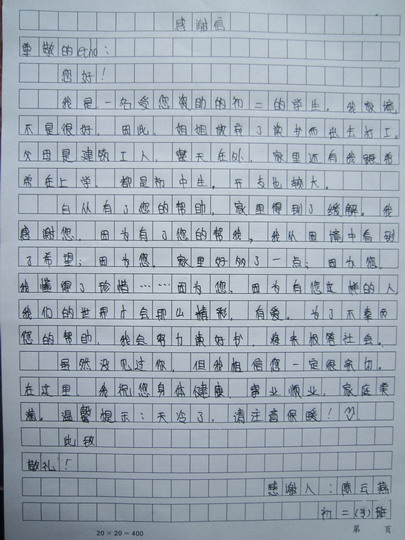 感谢信
尊敬的echo:
您好!
我是一名受您资助的初二的学生。我家境
不是很好。因此,姐姐放弃了读书而出去打工。
父母是建筑工人,整天在外。家里还有我跟哥
哥在上学,都是初中生,开支也较大。
自从有了您的帮助,家里得到了缓解。我
感谢您,因为有了您的帮我,我从困境中看到
了希望;因为您,家里好多了一点;因为您,
我懂得了珍惜……因为您,因为有您这样的人
我们的世界才会那么精彩,有爱。为了不辜负
您的帮助,我会努力奥好,将来报答社会。
虽然没见过你,但我相信您一定很亲切。
在这里,我祝您身体健康,事业顺业,家庭美
满。温馨提示:天冷了,请注意保暖!♡
此致
敬礼!
感谢人:陈云燕
初二 班
20×20=400
第 页